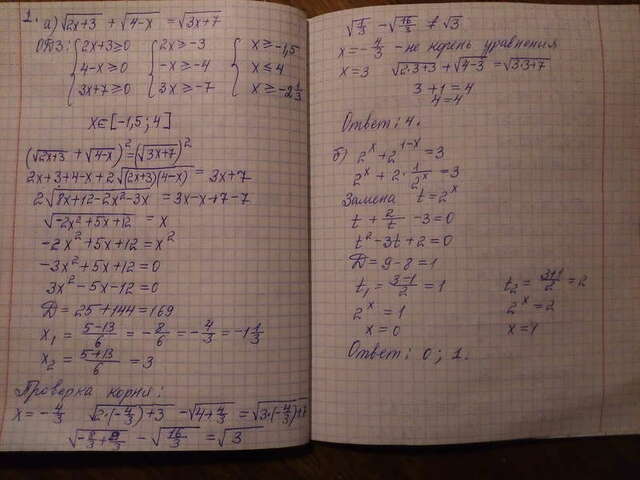 1. а) √(2x+3) + √(4-x) = √(3x+7)
ОДЗ: { 2x+3≥0 { 2x≥-3 { x≥-1,5
4-x≥0 -x≥-4 x≤4
3x+7≥0 3x≥-7 x≥-2 1/3
x∈[-1,5; 4]
(√(2x+3) + √(4-x))² = (√(3x+7))²
2x+3+4-x+2√((2x+3)(4-x)) = 3x+7
2√(8x+12-2x²-3x) = 3x-x+7-7
√(-2x²+5x+12) = x
-2x²+5x+12=x²
-3x²+5x+12=0
3x²-5x-12=0
D=25+144=169
x₁ = (5-13)/6 = -8/6 = -4/3 = -1 1/3
x₂ = (5+13)/6 = 3
Проверка корня:
x=-4/3 √(2·(-4/3)+3) - √(4+4/3) = √(3·(-4/3)+7)
√(-8/3+9/3) - √(16/3) = √3
√(1/3) - √(16/3) ≠ √3
x=-4/3 - не корень уравнения
x=3 √(2·3+3) + √(4-3) = √(3·3+7)
3+1=4
4=4
Ответ: 4.
б) 2^x + 2^(1-x) = 3
2^x + 2·1/2^x = 3
Замена t=2^x
t + 2/t - 3=0
t²-3t+2=0
D=9-8=1
t₁ = (3-1)/2 = 1 t₂ = (3+1)/2 = 2
2^x=1 2^x=2
x=0 x=1
Ответ: 0; 1.